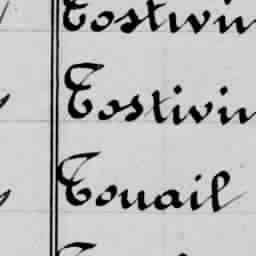 Tostivin
Tostivin
Touail